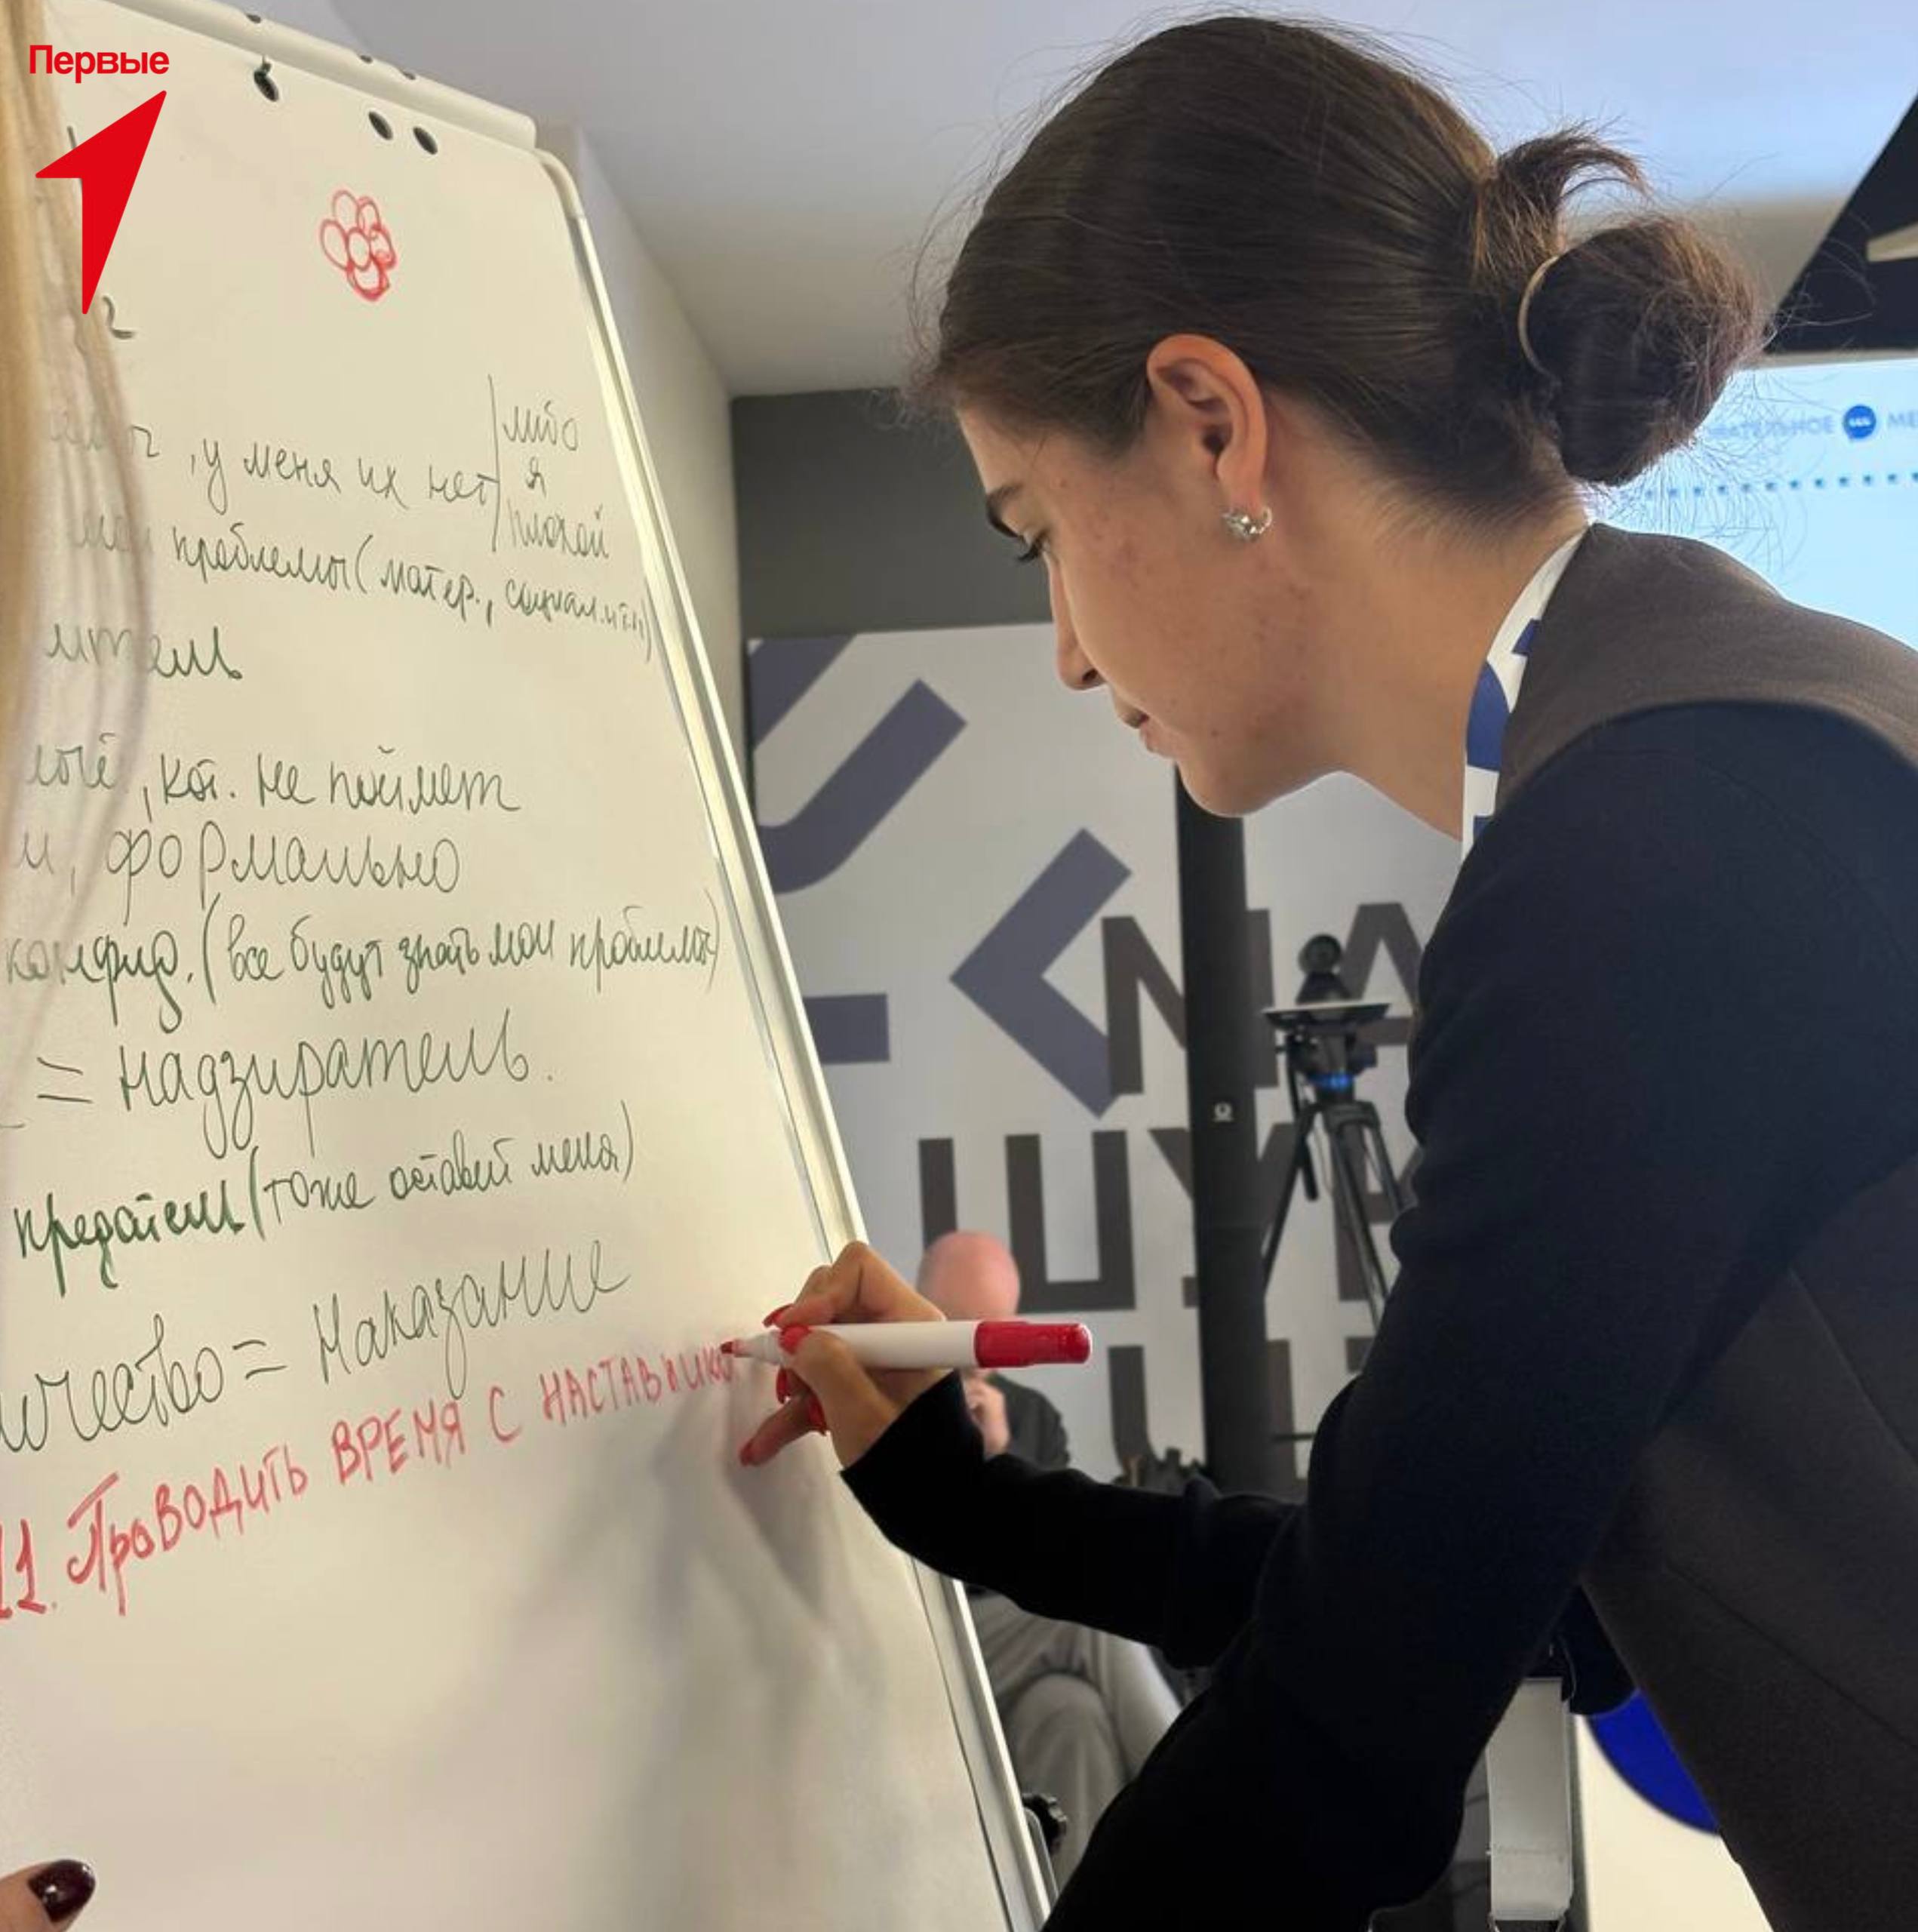 Первые
, у меня их нет
либо
я
плохой
мои проблемы (матер., социал. и т.п.)
, кот. не поймет
, формально
конфид. (все будут знать мои проблемы)
= надзиратель.
предатель (тоже оставит меня)
= Наказание
11. Проводить время с наставнико
МА
ШУК